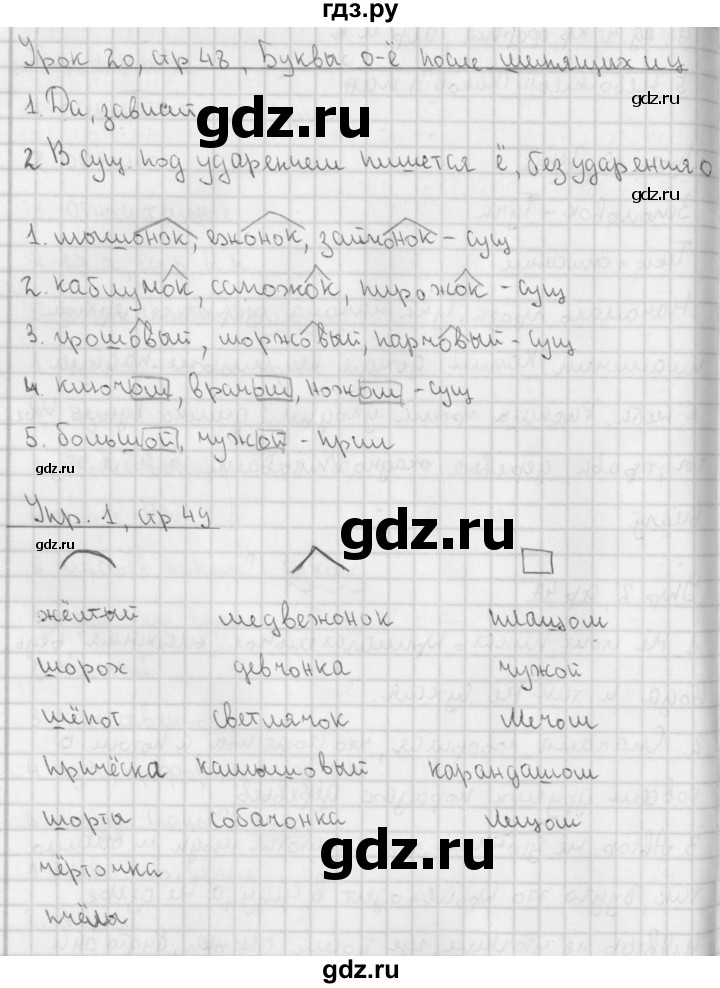 гдз.ру
Урок 20, стр 48, Буквы о-ё после шипящих и ц
gdz.ru
1. Да, зависит
gdz.ru
2 В сущ. под ударением пишется ё, без ударения о
1. мышонок, ежонок, зайчонок - сущ
2. каблучок, сапожок, пирожок - сущ
3. грошовый, моржовый, парчовый - сущ
4. ключом, врачом, ножом - сущ
gdz.ru
5. большой, чужой - прил
gdz.ru gdz.ru
Упр. 1, стр 49
gdz.ru
gdz.ru
жёлтый медвежонок плащом
шорох девчонка чужой
шёпот светлячок Мечом
причёска камышовый карандашом
шорты собачонка Лещом
gdz.ru
чёрточка
пчёлы
gdz.ru